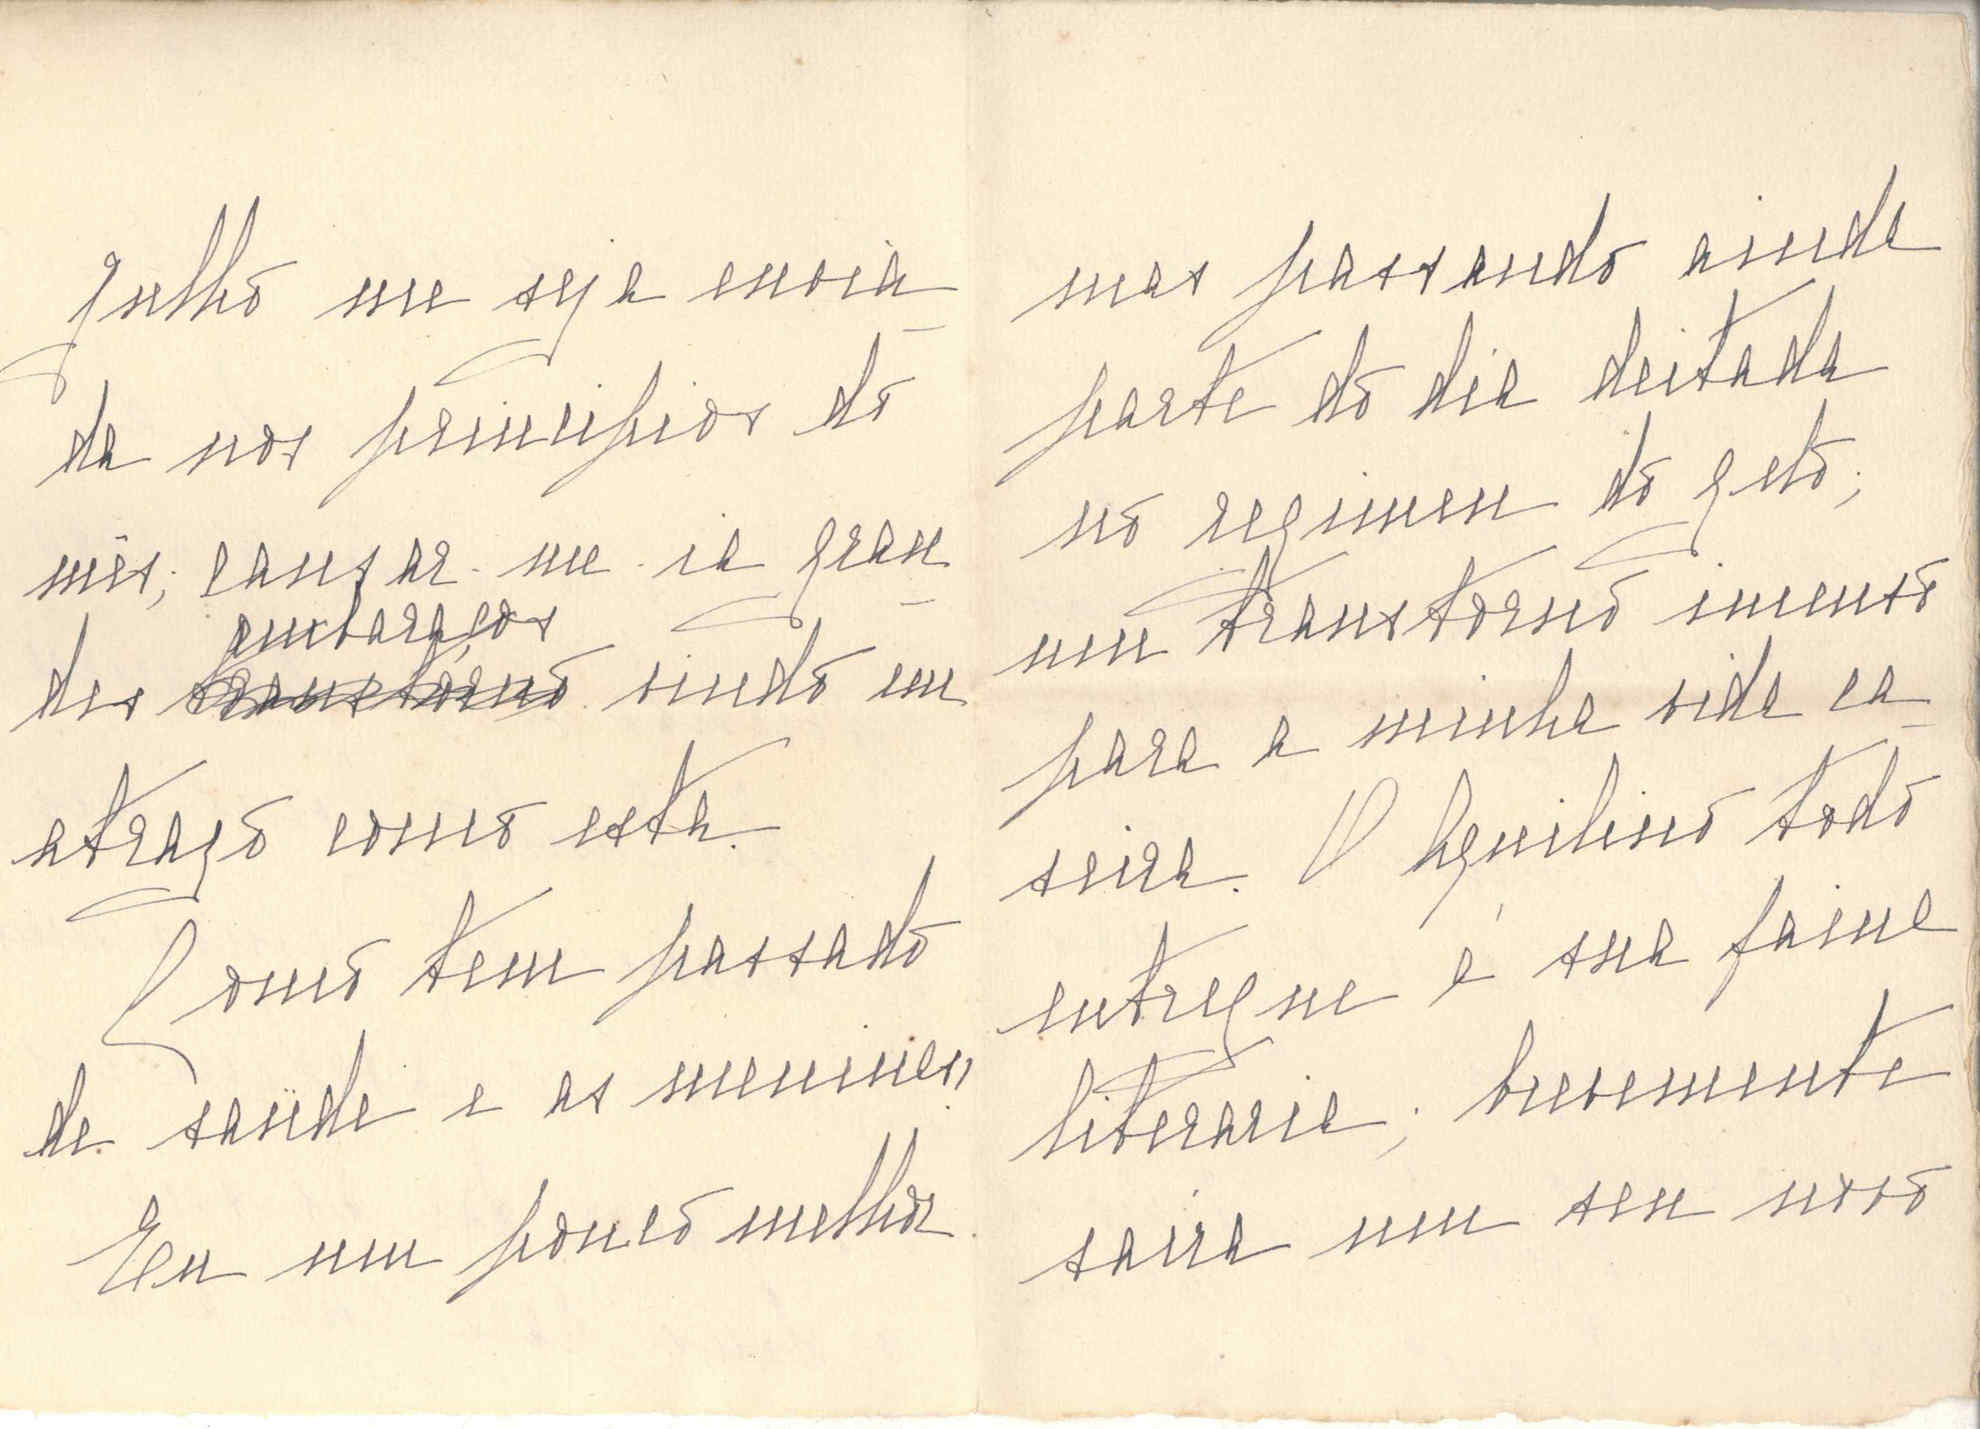 Julho me seja envia-
da nos principios do
mês; causar-me-ia gran-
embaraços
des transtorno vindo em
atrazo como esta.
Como tem passado
de saúde e as meninas
Eu um pouco melhor
mas passando ainda
parte do dia deitada
no regimen do gelo;
um transtorno imenso
para a minha vida ca-
seira. O Aquilino todo
entregue á sua faina
literaria; brevemente
saira um seu novo